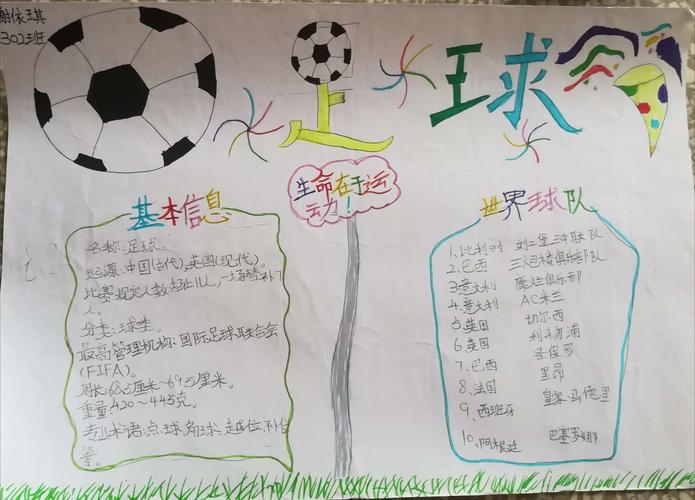 谢依琪
302班
足球
生命在于运
动！
基本信息
名称：足球。
起源：中国(古代)，英国(现代)。
比赛规定人数：场上11人，一场替补7
人。
分类：球类。
最高管理机构：国际足球联合会
(FIFA)。
周长：68.5厘米~69.5厘米。
重量：420~445克。
专业术语：点球，角球，越位，补位
等。
世界球队
1.比利时 列一堡三冲联队
2.巴西 俱乐部队
3.意大利 俱乐部
4.意大利 AC米兰
5.英国 切尔西
6.英国 利手物浦
7.巴西 圣保罗
8.法国 里昂
9.西班牙 皇家·马德里
10.阿根廷 巴塞罗娜